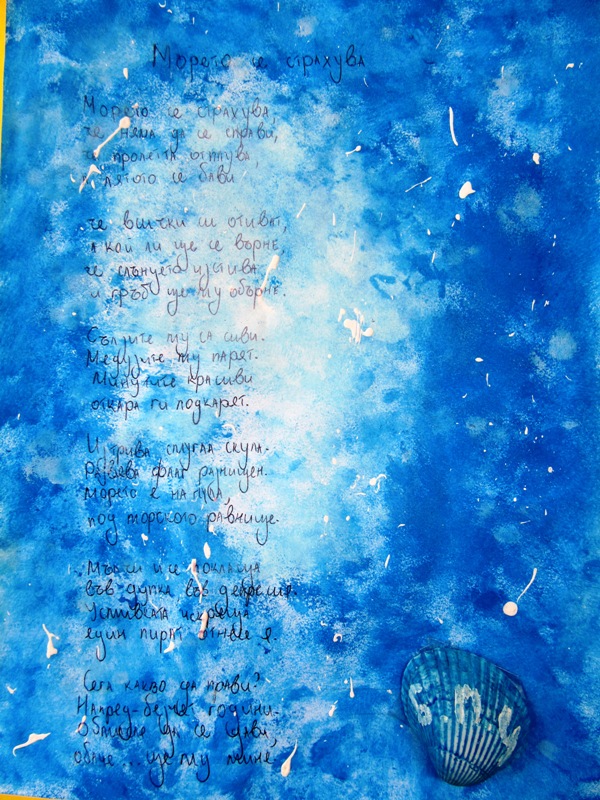 Морето се страхува
Морето се страхува,
че няма да се справи,
че пролетта отплува,
а лятото се бави
че всички си отиват,
а кой ли ще се върне,
че слънцето изстива
и гръб ще му обърне.
Сълзите му са сиви.
Медузите му парят.
Минутите красиви
откара ги подкарят.
И трива сплугла скула.
Развява флаг разнищен.
Морето е на нула,
под морското равнище.
Мъкси и се
във дупка във дебрение.
Усмивката
един пират отнесе я.
Сега какво да прави?
Напред-бегчет години.
се удави,
обаче... ще му мине.